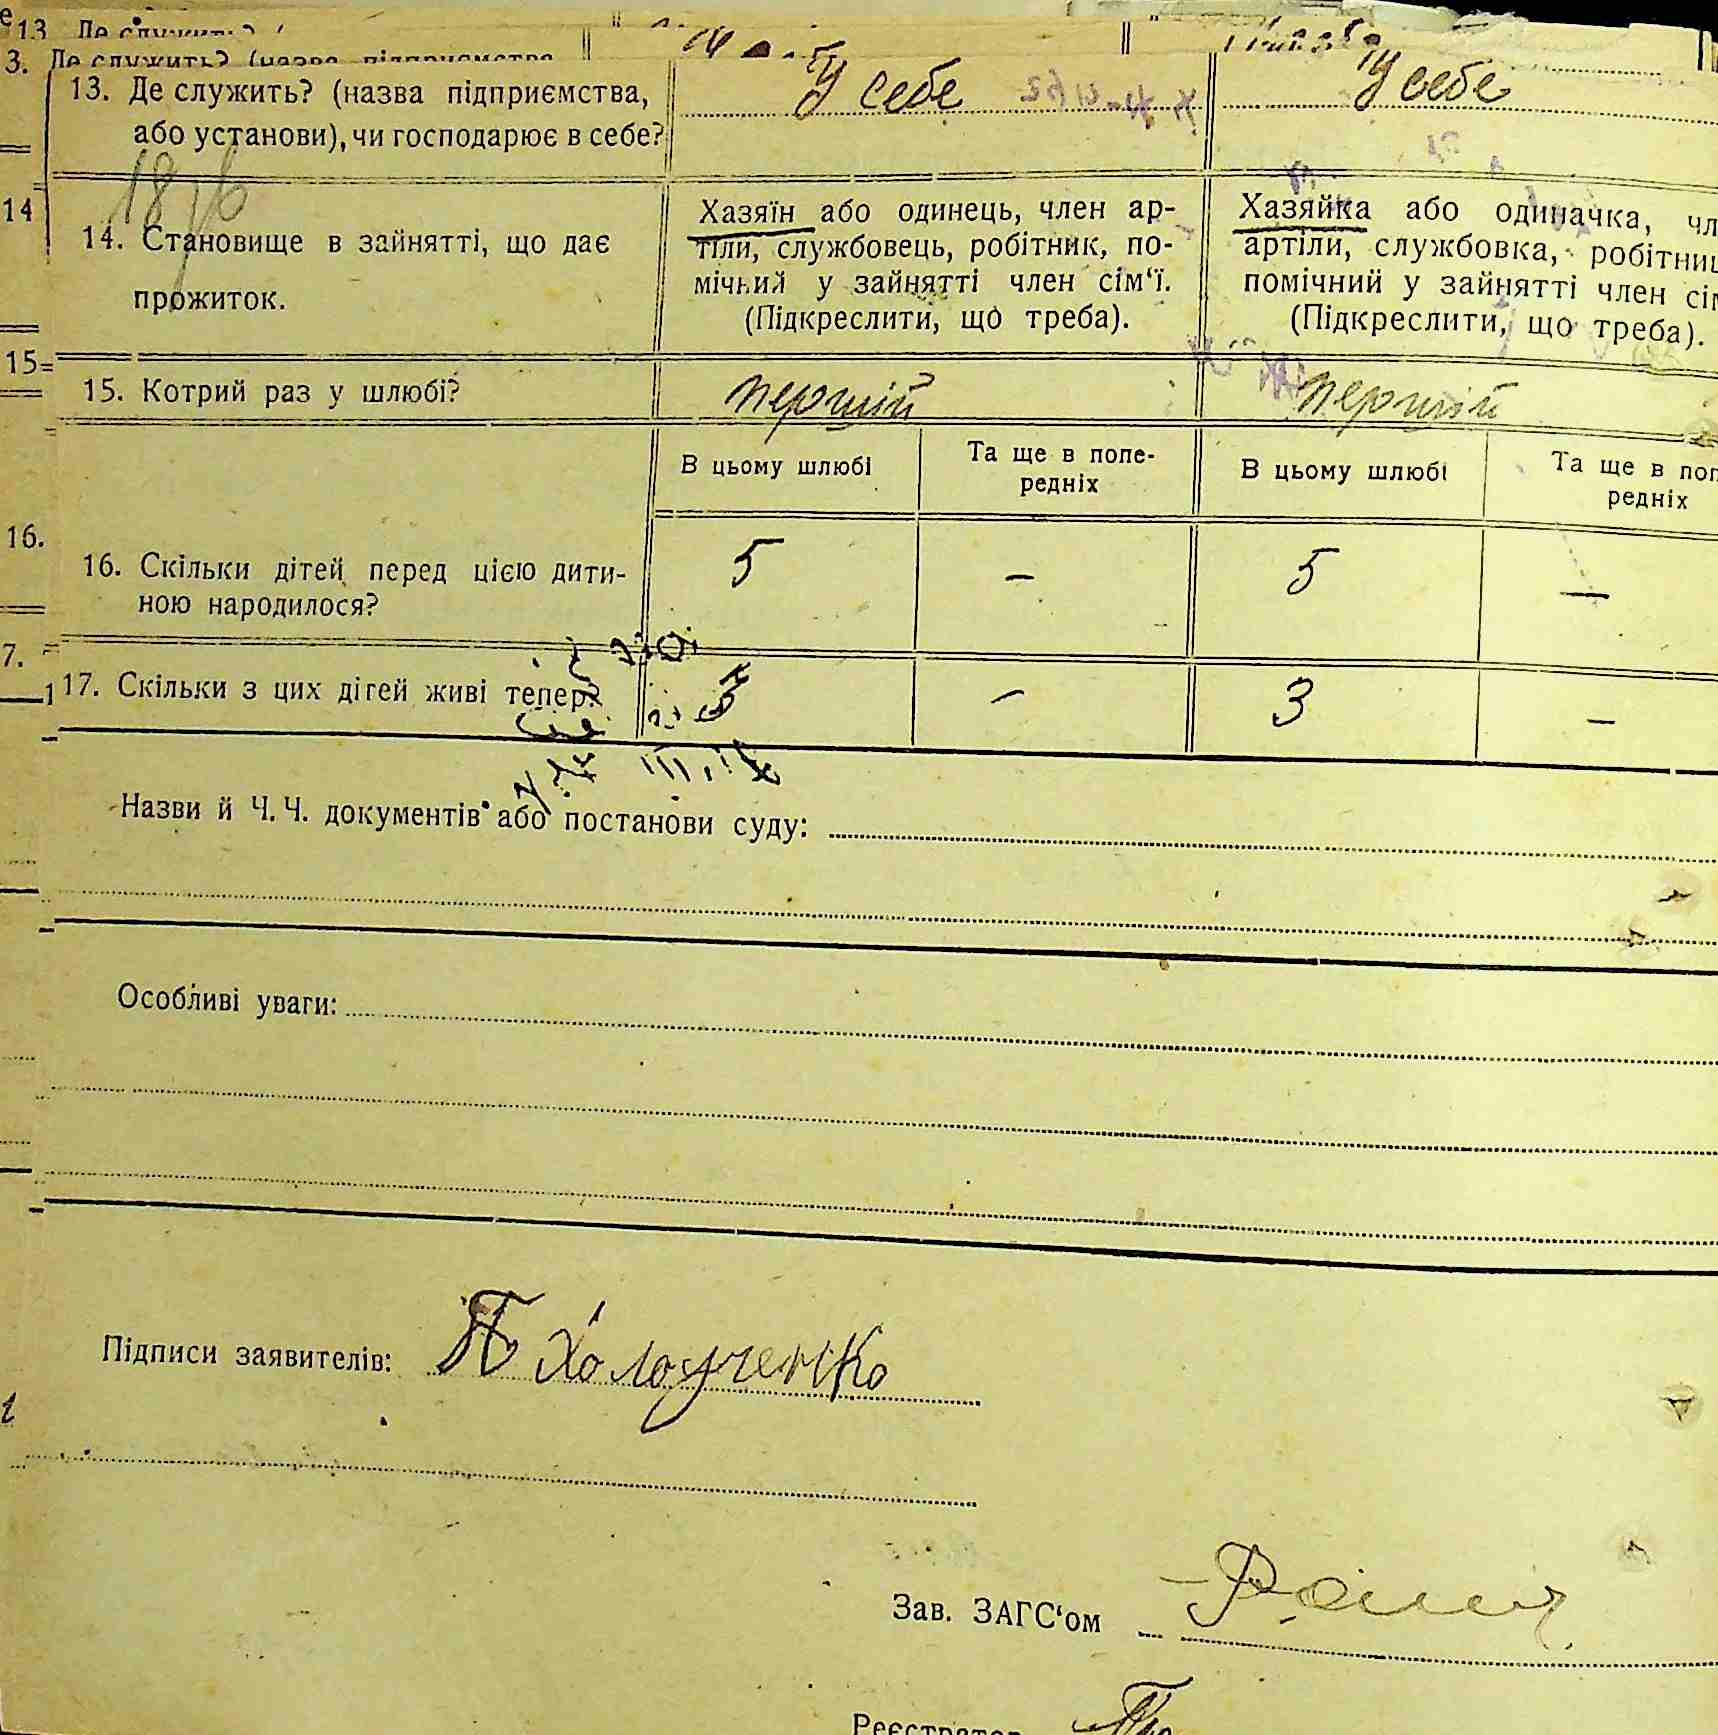 13. Де служить? (назва підприємства, У себе У себе
або установи), чи господарює в себе?
14. Становище в зайнятті, що дає
прожиток.
Хазяїн або одинець, член ар-
тіли, службовець, робітник, по-
мічний у зайнятті член сім‘ї.
(Підкреслити, що треба).
Хазяйка або одиначка, чл
артіли, службовка, робітниц
помічний у зайнятті член сім
(Підкреслити, що треба).
15. Котрий раз у шлюбі? першій першій
В цьому шлюбі
Та ще в попе-
редніх
В цьому шлюбі
Та ще в поп
редніх
16. Скільки дітей перед цією дити- 5 – 5 –
ною народилося?
17. Скільки з цих дітей живі тепер? 3 – 3 –
Назви й Ч. Ч. документів або постанови суду:
Особливі уваги:
Підписи заявителів:
Зав. ЗАГС‘ом
Реєстратор